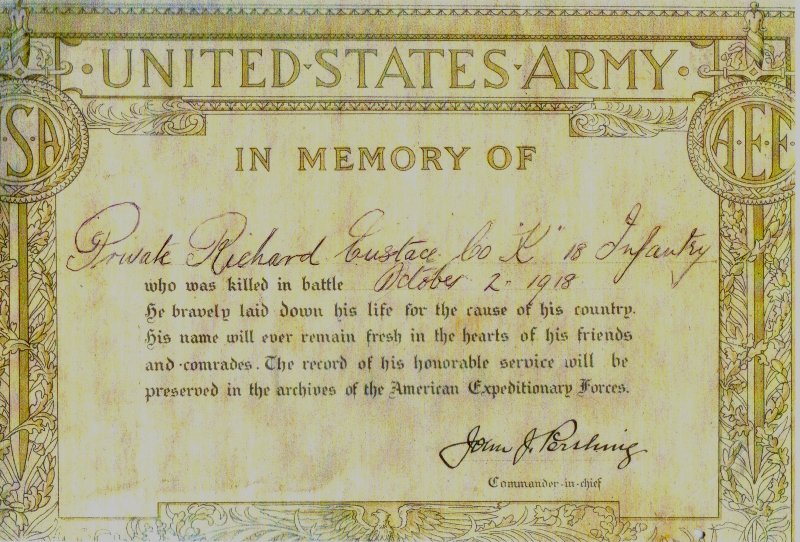 ·UNITED·STATES·ARMY·
SA
A·E·F
IN MEMORY OF
Private Richard Eustace Co "K" 18 Infantry
who was killed in battle October 2 - 1918
He bravely laid down his life for the cause of his country.
His name will ever remain fresh in the hearts of his friends
and comrades. The record of his honorable service will be
preserved in the archives of the American Expeditionary Forces.
John J. Pershing
Commander-in-chief